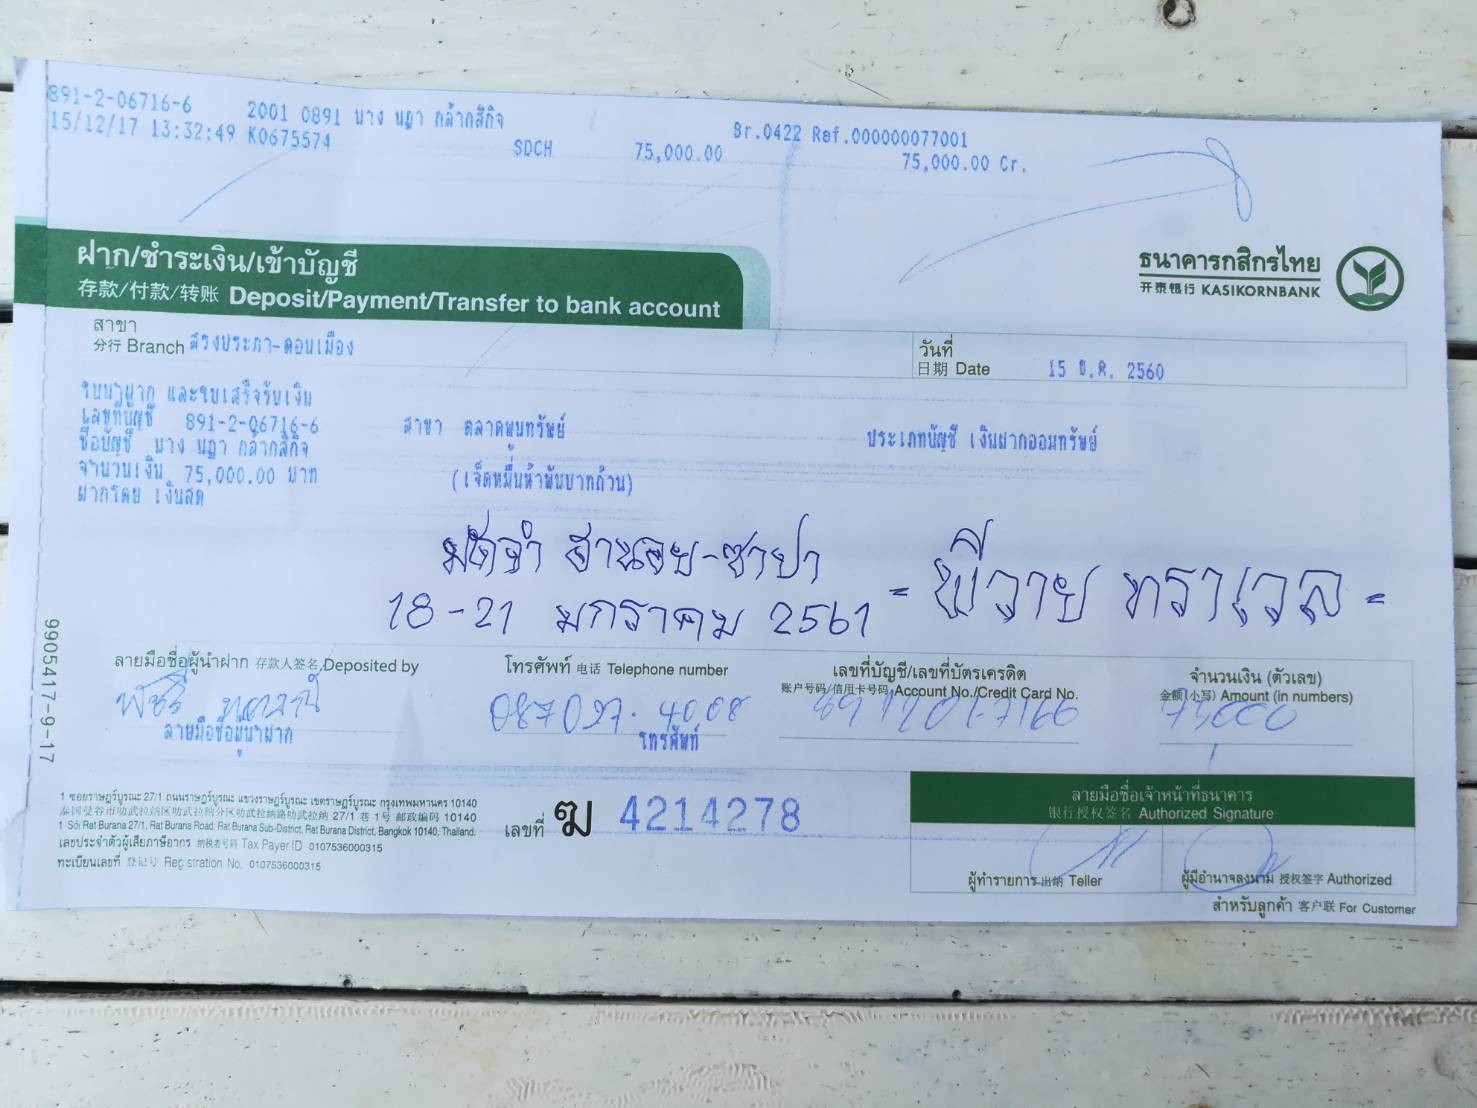 891-2-06716-6 2001 0891 นาง นฎา กล้ากสิกิจ Br.0422 Ref.000000077001
15/12/17 13:32:49 K0675574 SDCH 75,000.00 75,000.00 Cr.
ฝาก/ชำระเงิน/เข้าบัญชี
存款/付款/转账 Deposit/Payment/Transfer to bank account
ธนาคารกสิกรไทย
开泰银行 KASIKORNBANK
สาขา
分行 Branch สรงประภา-ดอนเมือง
วันที่
日期 Date 15 ธ.ค. 2560
ใบนำฝาก และใบเสร็จรับเงิน
เลขที่บัญชี 891-2-06716-6 สาขา ตลาดพูนทรัพย์ ประเภทบัญชี เงินฝากออมทรัพย์
ชื่อบัญชี นาง นฎา กล้ากสิกิจ
จำนวนเงิน 75,000.00 บาท (เจ็ดหมื่นห้าพันบาทถ้วน)
ฝากโดย เงินสด
มัดจำ ฮานอย-ซาปา
18-21 มกราคม 2561 = พีวาย ทราเวล =
9905417-9-17
ลายมือชื่อผู้นำฝาก 存款人签名 Deposited by
โทรศัพท์ 电话 Telephone number
087 027. 4008
เลขที่บัญชี/เลขที่บัตรเครดิต
账户号码/信用卡号码 Account No./Credit Card No.
จำนวนเงิน (ตัวเลข)
金额(小写) Amount (in numbers)
75000
ลายมือชื่อผู้นำฝาก
โทรศัพท์
1 ซอยราษฎร์บูรณะ 27/1 ถนนราษฎร์บูรณะ แขวงราษฎร์บูรณะ เขตราษฎร์บูรณะ กรุงเทพมหานคร 10140
泰国曼谷市叻武拉纳区叻武拉纳分区叻武拉纳路叻武拉纳 27/1 巷 1 号 邮政编码 10140
1 Soi Rat Burana 27/1, Rat Burana Road, Rat Burana Sub-District, Rat Burana District, Bangkok 10140, Thailand.
เลขประจำตัวผู้เสียภาษีอากร 纳税者号码 Tax Payer ID 0107536000315
ทะเบียนเลขที่ 登记号 Registration No. 0107536000315
เลขที่ ฆ 4214278
ลายมือชื่อเจ้าหน้าที่ธนาคาร
银行授权签名 Authorized Signature
ผู้ทำรายการ 出纳 Teller
ผู้มีอำนาจลงนาม 授权签字 Authorized
สำหรับลูกค้า 客户联 For Customer